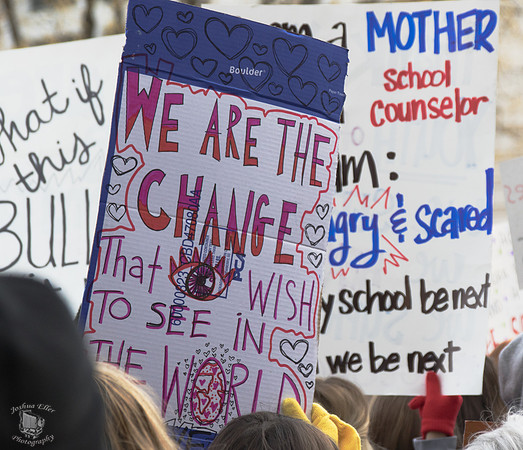 What if
this
BULL
Boulder
WE ARE THE
CHANGE
That WISH
TO SEE IN
THE WORLD
am a MOTHER
school
counselor
am:
ngry & scared
y school be next
we be next
Joshua Eller
Photography